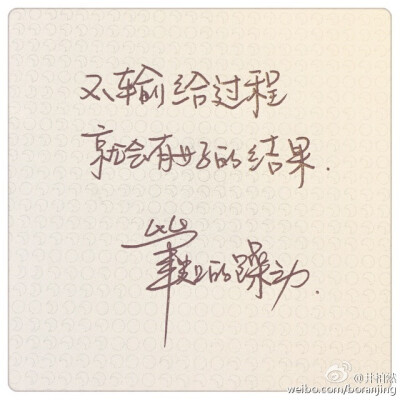 不输给过程
就会有好的结果.
上的躁动.
@井柏然
weibo.com/boranjing